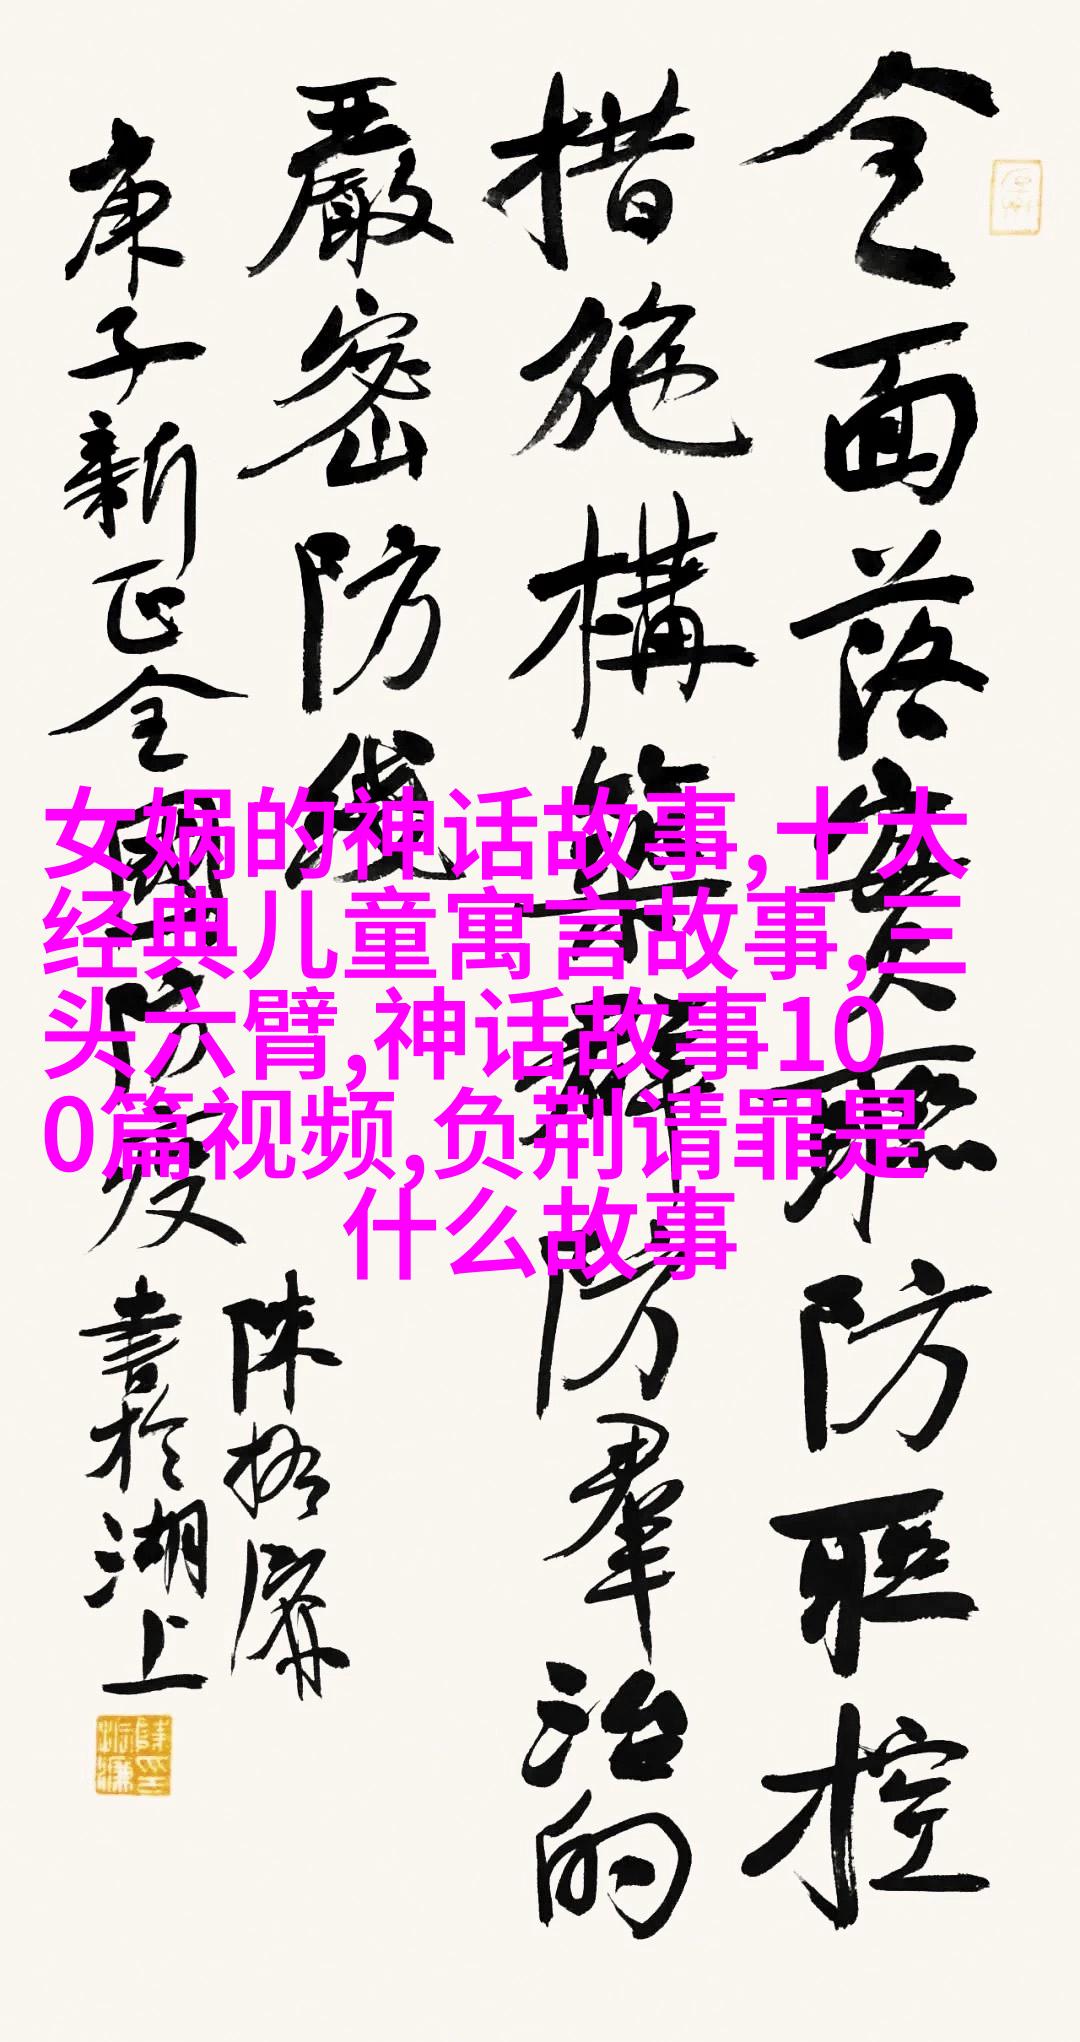 全面落實聯防聯控
措施構築群防羣治的
嚴密防綫
庚子新正全國防疫
陳振濂
書於湖上
女娲的神话故事,十大
经典儿童寓言故事,三
头六臂,神话故事10
0篇视频,负荆请罪是
什么故事